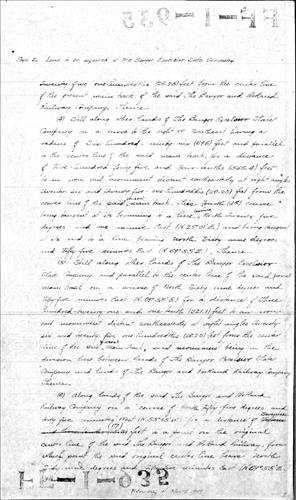 EE-1-935
Part 2. Land to be acquired of The Bangor Excelsior Slate Company
Twenty five one-hundredths (26.25) feet from the center line
of the present main track of the said The Bangor and Portland
Railway Company, Thence
(4) Still along other lands of The Bangor Excelsior Slate
Company on a curve to the right or Northeast having a
radius of Six hundred ninety one (691) feet and parallel
to the center line of the said main track, for a distance
of Five hundred forty five and four tenths (545.4) feet
to an iron and monument distant southeasterly at right angles
twenty six and twenty five one-hundredths (26.25) feet from the
center line of the said main track. This fourth (4th) course
being tangent at its beginning to a line North Twenty five
degrees and one minute East (N.25°01'E.) and being tangent
at its end to a line bearing North Sixty nine degrees
and fifty five minutes East (N.69°55'E.), Thence
(5) Still along other lands of The Bangor Excelsior
Slate Company and parallel to the center line of the said
main track on a course of North Sixty nine degrees and
fifty five minutes East (N.69°55'E.) for a distance of Three
hundred twenty one and one tenth (321.1) feet to an iron
and monument distant southeasterly at right angles twenty
six and twenty five one hundredths (26.25) feet from the center
line of the said main track, said monument being in the
division line between lands of The Bangor Excelsior Slate
Company and lands of The Bangor and Portland Railway Company
Thence
(6) Along lands of the said The Bangor and Portland
Railway Company on a course of North fifty five degrees and
minutes West for a distance of
feet to a point in the original
center line of the said The Bangor and Portland Railway, from
which point the said original center line bears North
Sixty nine degrees and fifty five minutes East (N.69°55'E.
EE-1-935